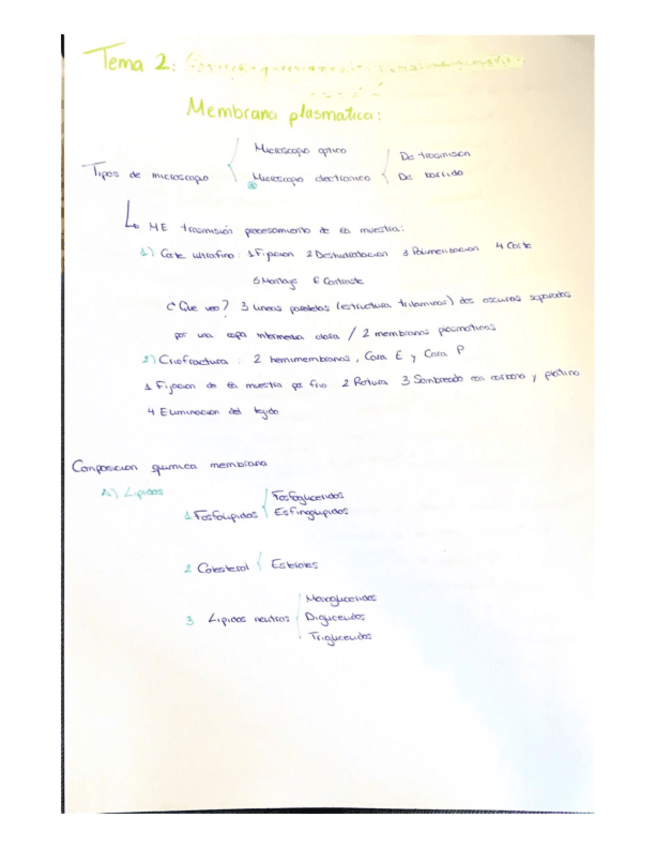 Tema 2:
Membrana plasmatica:
Tipos de microscopio
Microscopio optico
Microscopio electronico
De trasmision
De barrido
ME trasmisión procesamiento de la muestra:
1) Corte ultrafino: 1 Fijacion 2 Deshidratacion 3 Polimerizacion 4 Corte
5 Montaje 6 Contraste
¿Que veo? 3 lineas paralelas (estructura trilaminar) dos oscuras separadas
por una capa intermedia clara / 2 membranas plasmaticas
2) Criofractura: 2 hemimembranas, Cara E y Cara P
1 Fijacion de la muestra por frio 2 Rotura 3 Sombreado con carbono y platino
4 Eliminacion del tejido
Composicion quimica membrana
A) Lipidos
1 Fosfolipidos
Fosfogliceridos
Esfingolipidos
2 Colesterol
Esteroles
3 Lipidos neutros
Monogliceridos
Digliceridos
Trigliceridos